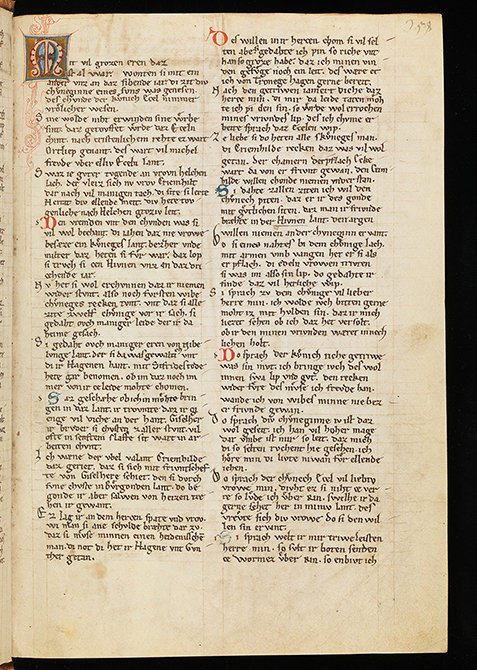 Mit vil grozen eren daz
ist al war. wonten si mit ein
ander vnz an daz sibende iar. di zit div
chvneginne eines svns was genesen.
des chvnde der kvnich Ezel nimmer
vrolicher wesen.
Sine wolde niht erwinden sine wrbe
sint. daz getovffet wrde daz Ezeln
chint. nach cristenlichem rehte. ez wart
Ortliep genant. des wart vil michel
frevde vber elliv Ezeln lant.
Swaz ie gvter tvgende an vroun helchen
lach. der vleiz sich nv vrov Criemhilt
dar nach vil manigen tach. di site si lerte
Herrat div ellende meit. div hete tov
genliche nach Helchen groziv leit.
Den vremden vnt den chvnden was si
vil wol bechant. di iahen daz nie vrowe
besæze ein kvneges lant. bezzer vnde
milter. daz heten si fvr war. daz lop
si trvch zen Hivnen vnz an daz dri
zehende iar.
Nv het si wol erchvnnen daz ir niemen
wider stvnt. also noch fvrsten wibe
chvneges recken tvnt. vnt daz si alle
zite zwelf chvnige vor ir sach. si
gedaht ovch maniger leide der ir da
heime gesach.
Si gedaht ovch maniger eren von Nibe
lvnge lant. der si da was gewaltic vnt
di ir Hagenen hant. mit Sifrides tode
hete gar benomen. ob im daz noch im
mer von ir ze leide mohte chomen.
Daz geschæhe ob ich in mohte brin
gen in daz lant. ir trovmte daz ir gi
enge vil diche an der hant. Giselher
ir brvder si chvsten zaller stvnt vil
ofte in senftem slaffe. sit wart in ar
beiten chvnt.
Ich wæne der vbel valant Criemhilde
daz geriet. daz si sich mit frivntschefte
von Giselhere schiet. den si dvrch
svne chvste in bvrgonden lant. do be
gonde ir aber salwen von heizen tre
hen ir gewant.
Ez lag ir an dem herzen spate vnd vrvo.
wi man si ane schvlde bræhte dar zv.
daz si mvse minnen einen heidenischen
man. di not di het ir Hagene vnt Gvn
ther getan.
Des willen in ir herzen chom si vil sel
ten abe. gedahte ich pin so riche vnt
han so groze habe. daz ich minen vin
den gefvge noch ein leit. des wære et
ich von Tronege Hagen gerne bereit.
Nach den getriwen iamert diche daz
herze min. di mir da leide taten moh
te ich pi den sin. so wrde wol errochen
mines vrivndes lip. des ich chvme er
beite sprach daz Ezelen wip.
Ze liebe si do heten alle skvneges man.
di Criemhilde recken daz was vil wol
getan. der chamern der pflach Ecke
wart da von er frivnt gewan. den Crim
hilde willen chvnde niemen vnder stan.
Si dahte zallen ziten ich wil den
chvnech piten. daz er ir des gonde
mit gvtlichen siten. daz man ir frivnde
bræhte in der Hivnen lant. den argen
willen niemen an der chvneginne ervant.
Do si eines nahtes bi dem chvnige lach.
mit armen vmb vangen het er si als
er pflach. di edeln vrowen trivten
si was im also sin lip. do gedahte ir
finde daz vil herliche wip.
Si sprach zv dem chvnige vil lieber
herre min. ich wolde ivch bitten gerne
moht iz mit hvlden sin. daz ir mich
liezet sehen ob ich daz het versolt.
ob ir den minen vrivnden wæret innech
lichen holt.
Do sprach der kvnich riche getriwe
was sin mvt. ich bringe ivch des wol
innen swa lip vnd gvt. den recken
wider fvre des mvse ich frevde han.
wande ich von wibes minne nie bez
zer frivnde gewan.
Do sprach div chvneginne iv ist daz
wol geseit. ich han vil hoher mage
dar vmbe ist mir so leit. daz mich
di so selten rvchent hie gesehen. ich
hôre min di livte niwan fvr ellende
iehen.
Do sprach der chvnech Ezel vil liebiv
vrowe min. divhtez si niht ze ver
re so lvde ich vber Rin. swelhe ir da
gerne sehet her in minv lant. des
vrevte sich div vrowe do si den wil
len sin ervant.
Si sprach welt ir mir triwe leisten
herre min. so svlt ir boten senden
ce Wormez vber Rin. so enbivt ich